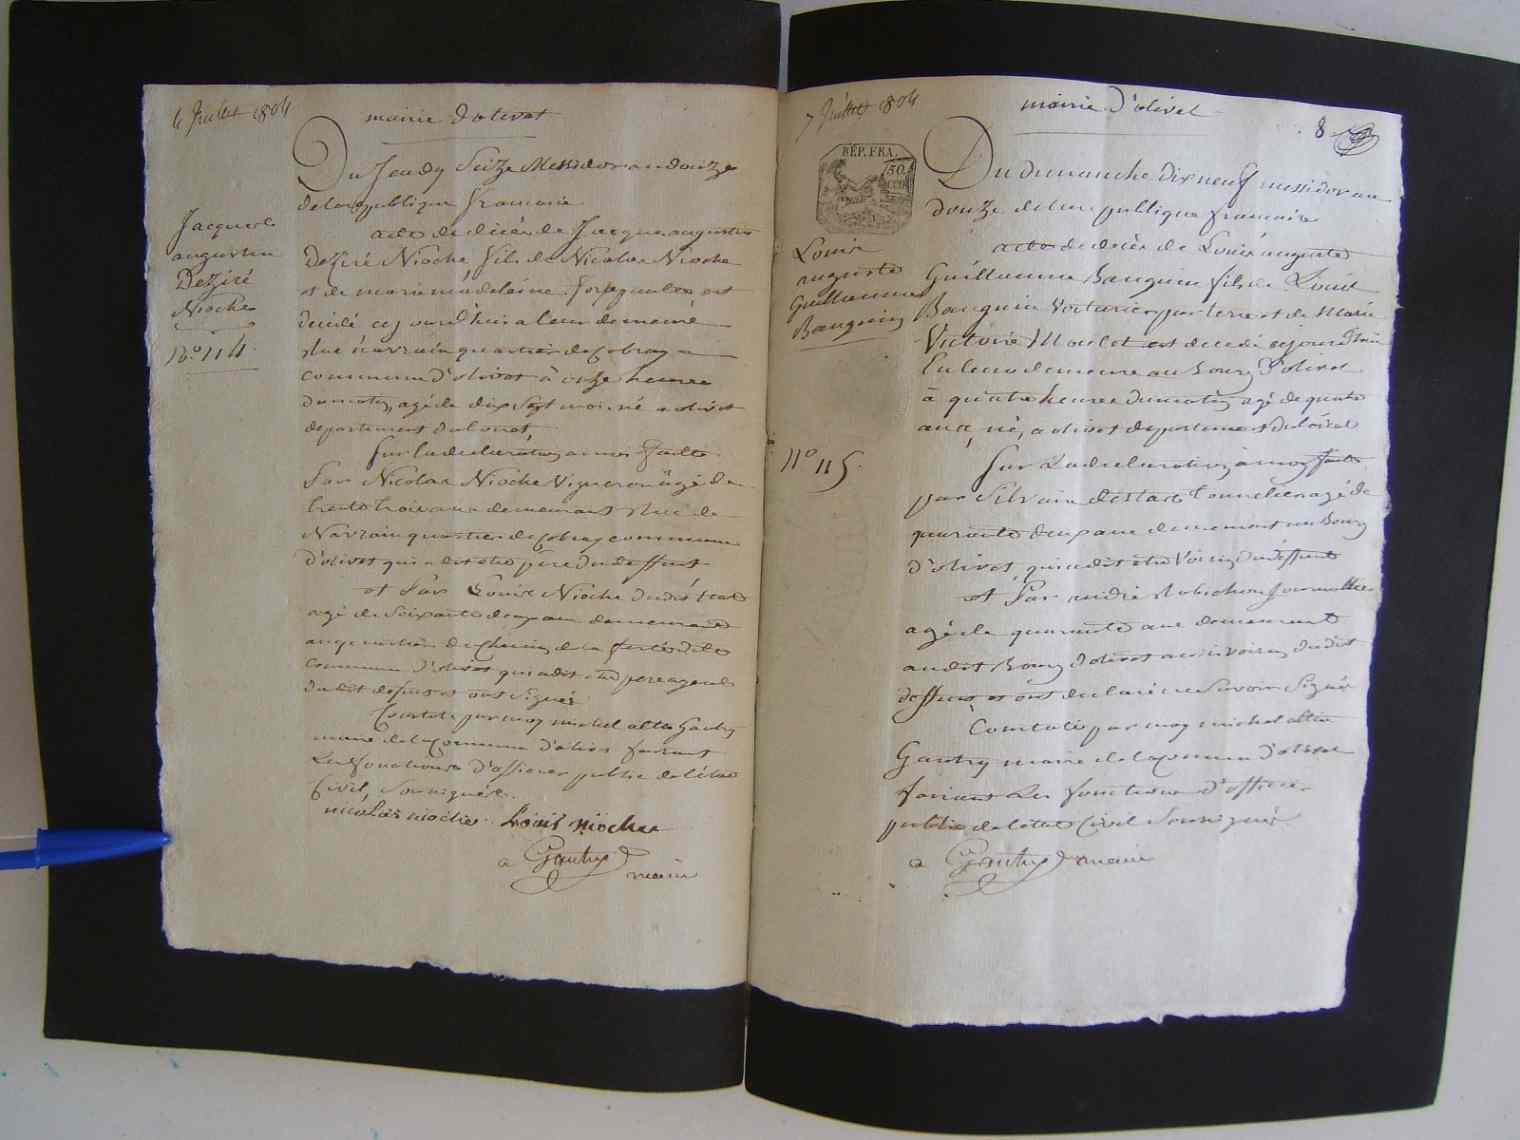 4 Juillet 1804
mairie d'olivet
Du Jeudy Seize Messidor an douze
de la republique francaise
Jacques
augustin
Deziré
Nioche
N.o 114.
acte de décès de Jacque augustin
Deziré Nioche fils de Nicolas Nioche
et de marie madelaine est
decédé cejourd'huis a leur demeure
rue navrain quartier de Cobray
commune d'olivet à onze heures
du matin, agé de dix Sept mois né a olivet
departement du loiret
Sur la declaration a moy faitte
Par Nicolas Nioche Vigneron agé de
trente trois ans demeurant Rue de
Navrain quartier de Cobray commune
d'olivet qui a dit etre père du deffunt
et Par Louis Nioche
agé de Soixante deux ans demeurant
au quartier du Chemin de la ferté dite
Commune d'olivet qui a dit etre pere ageul
dudit defunt et ont Signés
Constaté par moy michel altin Gautry
maire de la Commune d'olivet faisant
Les fonctions d'officier public de l'état
Civil, Soussignés.
nicolas nioche Louis nioche
a Gautry maire
7 Juillet 1804
mairie D'olivet
8
RÉP. FRA.
50
Du dimanche dix neuf messidor an
douze de la republique francaise
Louis
auguste
Guillaume
Bauguin
N.o 115.
acte de décès de Louis auguste
Guillaume Bauguin fils de Louis
Bauguin Voiturier par terre et de Marie
Victoire Moulet est decedé cejourd'huis
en leur demeure au Bourg D'olivet
à quatre heures du matin, agé de quatre
ans, né, a olivet departement du loiret
Sur La declaration, a moy faitte
par Silvain tonnelier agé de
quarante deux ans demeurant au Bourg
d'olivet, qui a dit etre Voisin du deffunt
et Par andré Robichon Journallier
agé de quarante ans demeurant
audit Bourg d'olivet aussi voisin dudit
deffunt et ont declaré ne Savoir Signer
Constaté par moy michel altin
Gautry maire de la Commune d'olivet
faisant Les fonctions d'officier
public de l'état Civil Soussigné
a Gautry maire